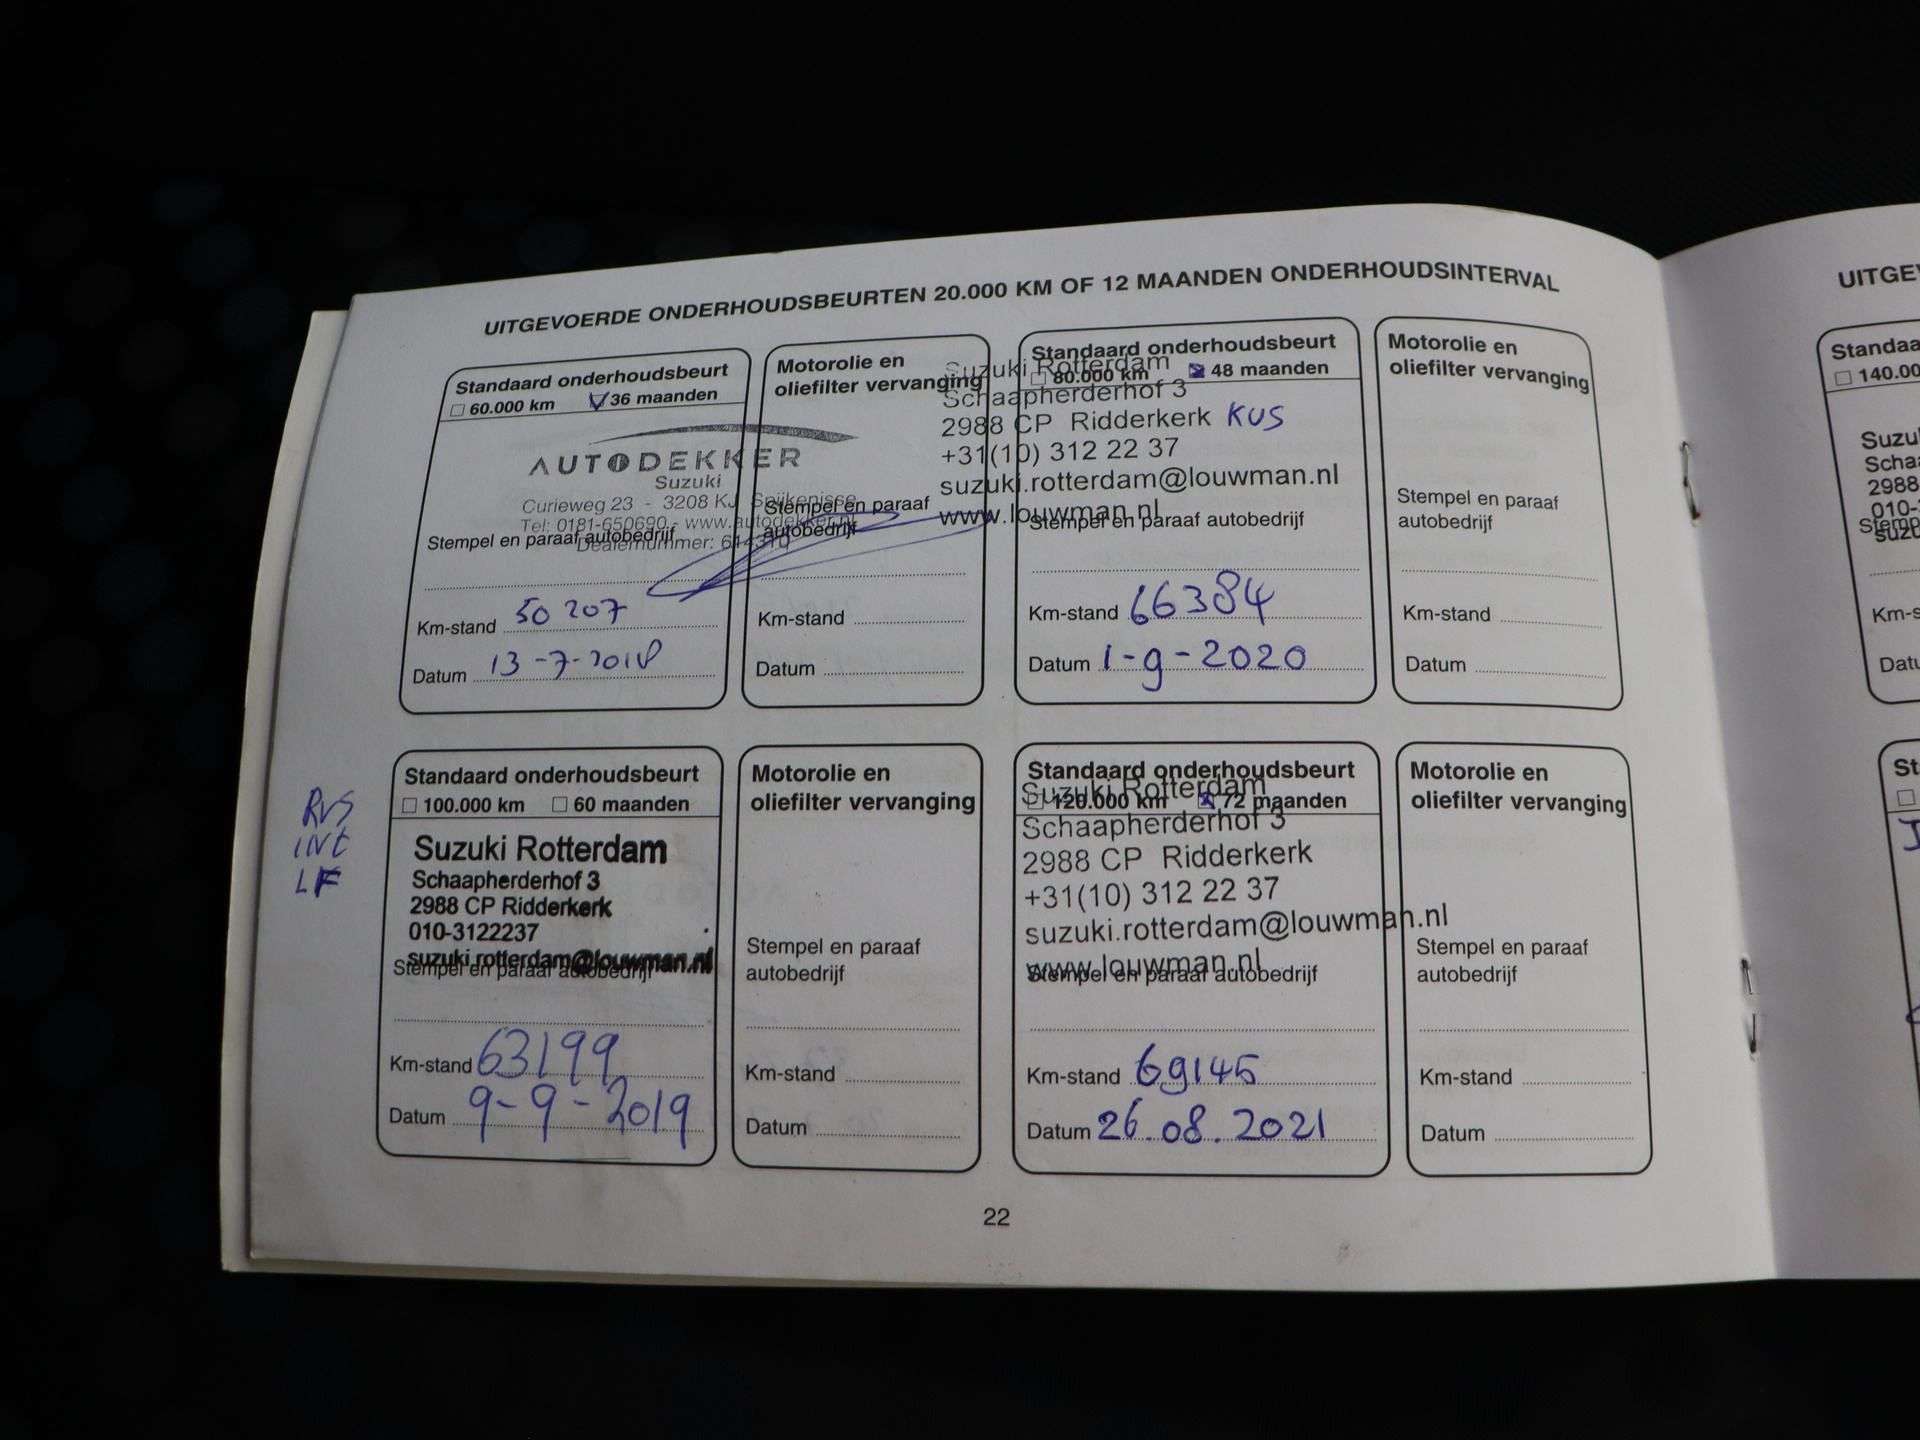 UITGEVOERDE ONDERHOUDSBEURTEN 20.000 KM OF 12 MAANDEN ONDERHOUDSINTERVAL
Standaard onderhoudsbeurt
60.000 km 36 maanden
AUTODEKKER
Suzuki
Curieweg 23 - 3208 KJ Spijkenisse
Tel: 0181-650690 - www.autodekker.nl
Dealernummer: 614310
Stempel en paraaf autobedrijf
Km-stand 50 207
Datum 13-7-2018
Motorolie en
oliefilter vervanging
Stempel en paraaf
autobedrijf
Km-stand
Datum
Standaard onderhoudsbeurt
80.000 km 48 maanden
Suzuki Rotterdam
Schaapherderhof 3
2988 CP Ridderkerk KUS
+31(10) 312 22 37
suzuki.rotterdam@louwman.nl
www.louwman.nl
Stempel en paraaf autobedrijf
Km-stand 66384
Datum 1-9-2020
Motorolie en
oliefilter vervanging
Stempel en paraaf
autobedrijf
Km-stand
Datum
RVS
INC
LF
Standaard onderhoudsbeurt
100.000 km 60 maanden
Suzuki Rotterdam
Schaapherderhof 3
2988 CP Ridderkerk
010-3122237
suzuki.rotterdam@louwman.nl
Stempel en paraaf autobedrijf
Km-stand 63199
Datum 9-9-2019
Motorolie en
oliefilter vervanging
Stempel en paraaf
autobedrijf
Km-stand
Datum
Standaard onderhoudsbeurt
120.000 km 72 maanden
Suzuki Rotterdam
Schaapherderhof 3
2988 CP Ridderkerk
+31(10) 312 22 37
suzuki.rotterdam@louwman.nl
www.louwman.nl
Stempel en paraaf autobedrijf
Km-stand 69145
Datum 26.08.2021
Motorolie en
oliefilter vervanging
Stempel en paraaf
autobedrijf
Km-stand
Datum
22
UITGE
Standaa
140.00
Suzu
Scha
2988
010-
Stemp
suzu
Km-s
Datu
St